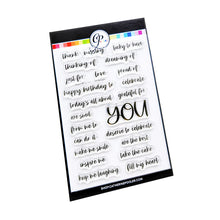 CP
thank missing lucky to have
thinking of dreaming of
just for love proud of
happy birthday to celebrate
today's all about grateful for
we said YOU
from me to
can do it deserve to celebrate
make me smile are the best
inspire me take the cake
keep me laughing fill my heart
SHOP.CATHERINEPOOLER.COM